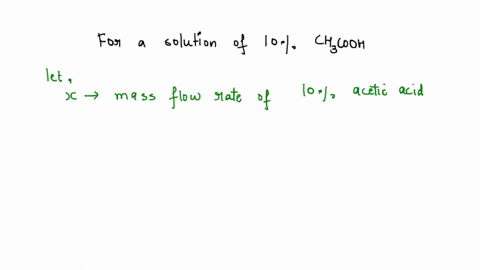 For a solution of 10% CH₃COOH
let,
x → mass flow rate of 10% acetic acid